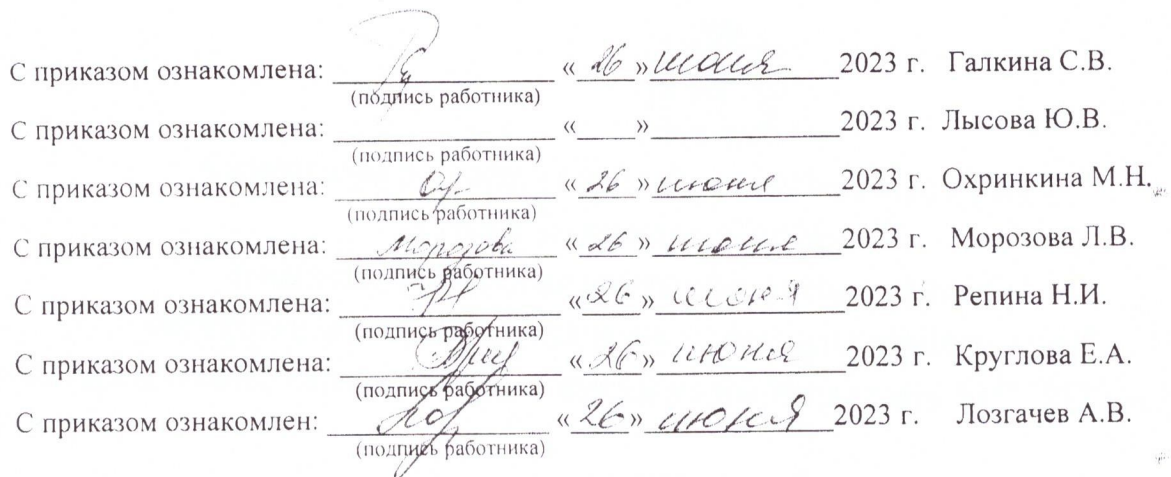 С приказом ознакомлена: ____________ « 26 » июня 2023 г. Галкина С.В.
(подпись работника)
С приказом ознакомлена: ____________ «____»____________2023 г. Лысова Ю.В.
(подпись работника)
С приказом ознакомлена: ____________ « 26 » июня 2023 г. Охринкина М.Н.
(подпись работника)
С приказом ознакомлена: Морозова « 26 » июня 2023 г. Морозова Л.В.
(подпись работника)
С приказом ознакомлена: ____________ « 26 » июня 2023 г. Репина Н.И.
(подпись работника)
С приказом ознакомлена: ____________ « 26 » июня 2023 г. Круглова Е.А.
(подпись работника)
С приказом ознакомлен: ____________ « 26 » июня 2023 г. Лозгачев А.В.
(подпись работника)